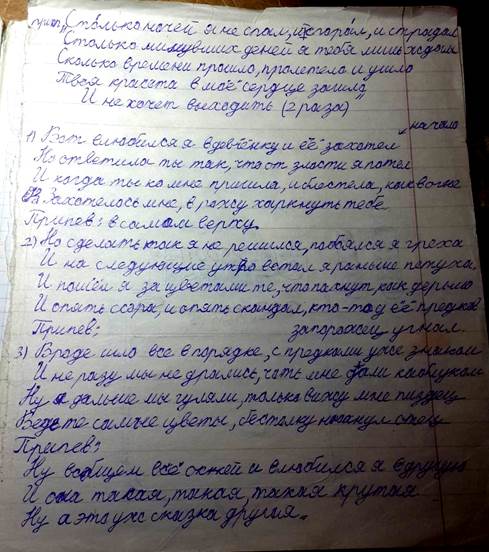 прип. "Столько ночей я не спал, и сгорал, и страдал
Столько минувших дней я тебя лишь ждал
Сколько времени прошло, пролетело и ушло
Твоя красота в моё сердце зашла"
И не хочет выходить (2 раза)
начало
1) Вот влюбился я в девчёнку и её захотел
Но ответила ты так, что от злости я потел
И когда ты ко мне пришла, и блестела, как в огне
Захотелось мне, в рожу харкнуть тебе
Припев: в самом верху.
2) Но сделать так я не решился, побоялся я греха
И на следующие утро встал я раньше петуха,
И пошёл я за цветами те, что пахнут, как дерьмо
И опять ссора, и опять скандал, кто-то у её предков
Припев; запорожец угнал.
3) Вроде шло все в порядке, с предками уже знаком
И не разу мы не дрались, чуть мне дали каблуком
Ну а дальше мы гуляли, только вижу мне пиздец
Ведь те самые цветы, бестолку нюханул отец
Припев:
Ну вобщем всё окей и влюбился я в другую
И она такая, такая, такая крутая
Ну а это уже сказка другая.